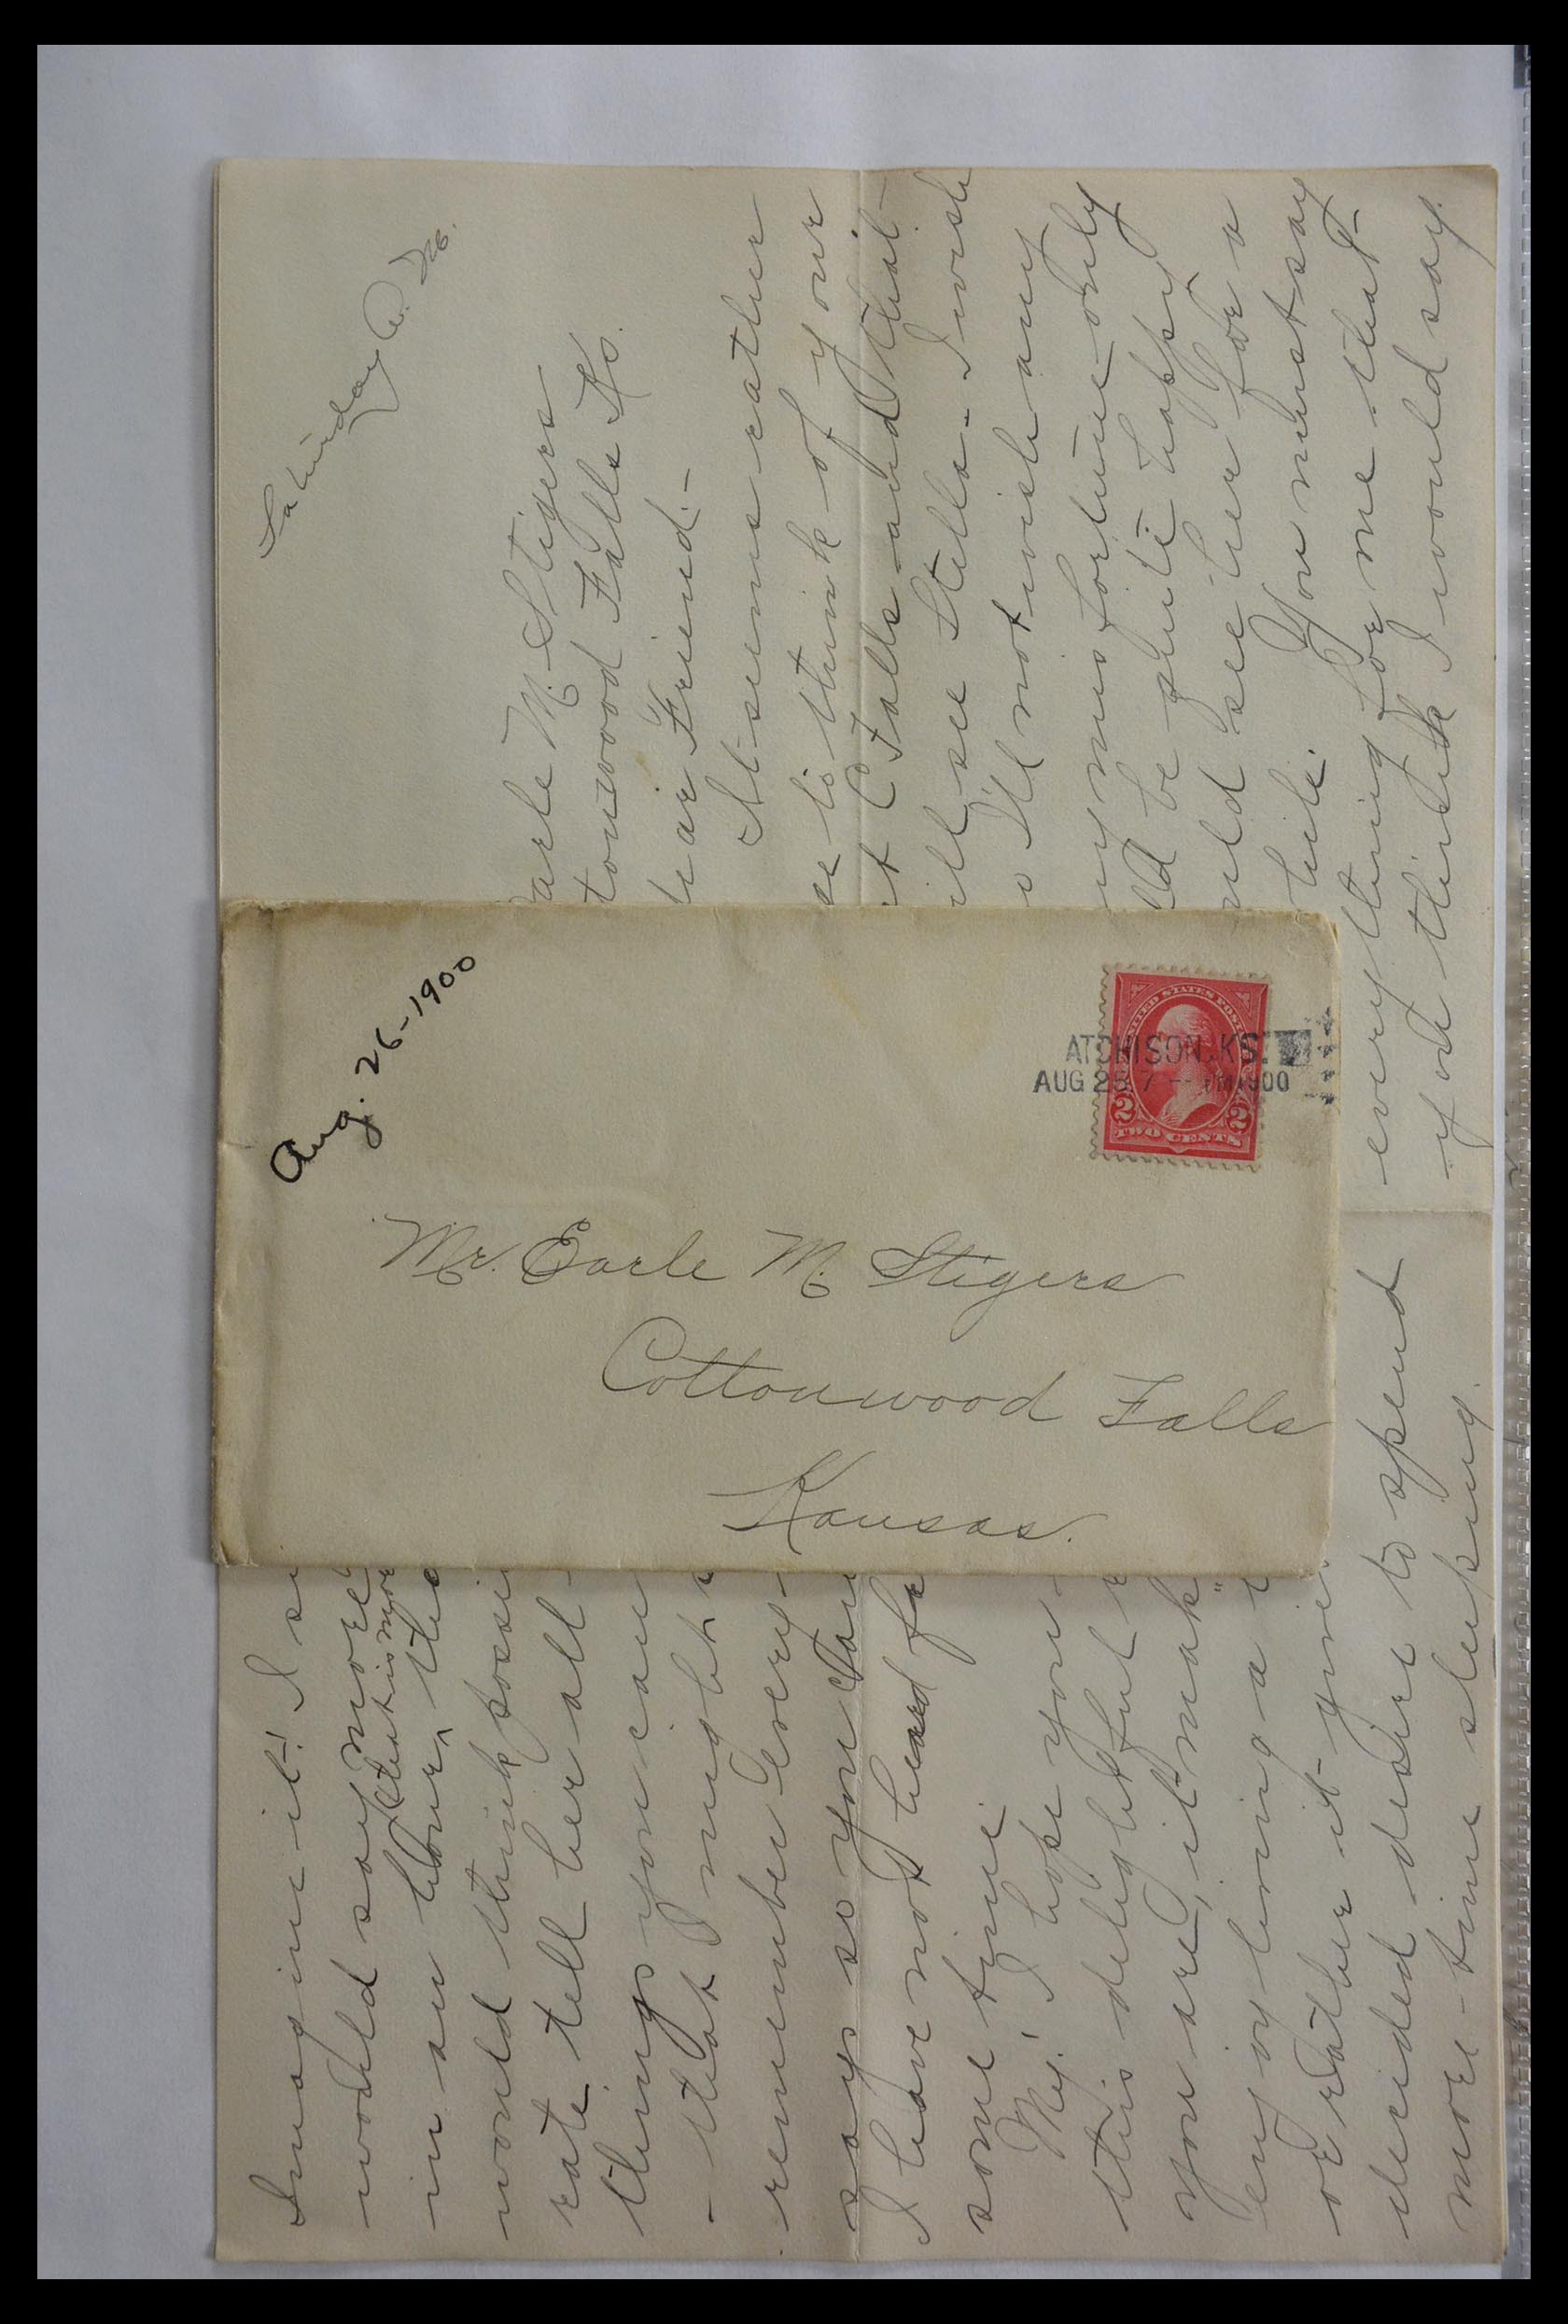 Saturday A. M.
arle M. Stigers
tonwood Falls Ks.
ear Friend:-
It seems rather
se to think of your
t C Falls and that
ill see Stella - I wish
I'd not wish any
my misfortune only
ld be quite happy
uld see her for a
hile. You must say
everything for me that
you think I would say.
Aug. 26-1900
UNITED STATES POST
ATCHISON, KS.
AUG 25 7 -- PM 1900
2 2
TWO CENTS
Mr. Earle M. Stigers
Cottonwood Falls
Kansas.
Imagine it! I
would say more
in an hour, that is more
would think possi
rate, tell her all
things you can
- that I might
remember every-
says so you can
I have not heard fr
some time.
My! I hope you
this delightful
you are, it mak
enjoy living a
or rather it give
decided desire to spend
more time sleeping.